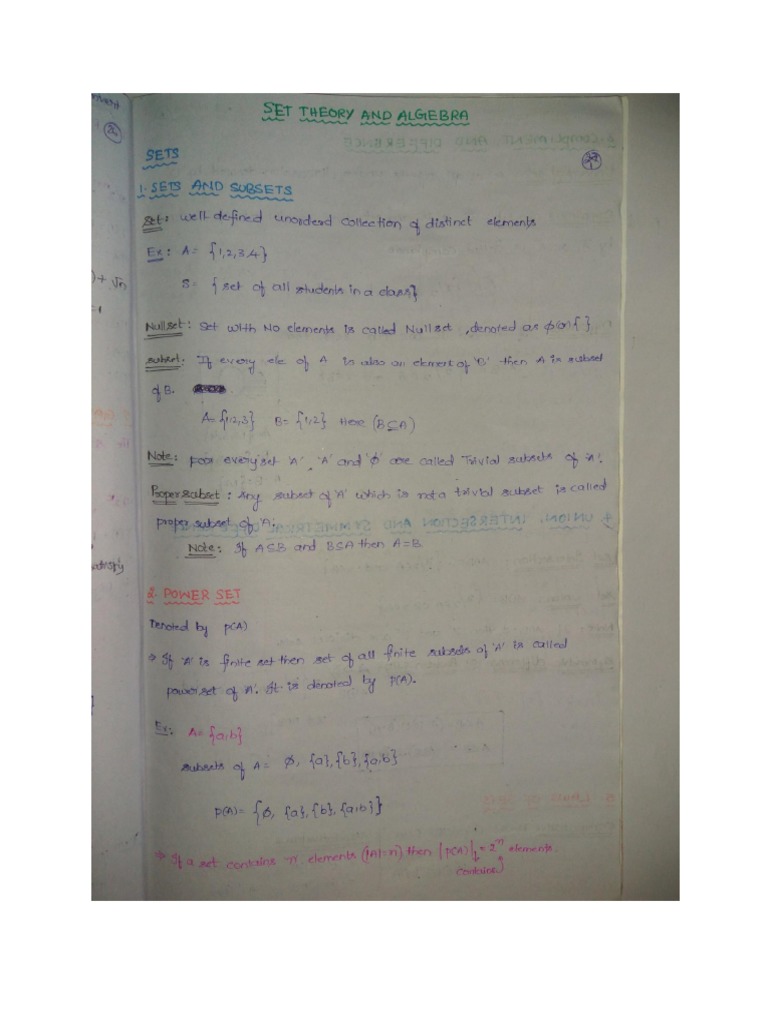 SET THEORY AND ALGEBRA
SETS
1. SETS AND SUBSETS
Set: well-defined unorderd collection of distinct elements
Ex: A = {1,2,3,4}
S = { set of all students in a class}
Null set: Set with No elements is called Null set, denoted as ϕ (or) { }
subset: If every ele of A is also an element of 'B' then A is subset
of B.
A= {1,2,3} B= {1,2} Here (B⊆A)
Note: every set 'A', 'A' and 'ϕ' are called Trivial subsets of 'A'.
Proper subset: Any subset of 'A' which is not a trivial subset is called
proper subset of 'A'.
Note: If A⊆B and B⊆A then A=B
2. POWER SET
Denoted by P(A)
→ If 'A' is finite set then set of all finite subsets of 'A' is called
power set of 'A'. It is denoted by P(A).
Ex: A= {a,b}
subsets of A= ϕ, {a}, {b}, {a,b}
P(A)= {ϕ, {a}, {b}, {a,b}}
→ If a set contains 'n' elements (|A|=n) then |P(A)| = 2ⁿ elements.
contains